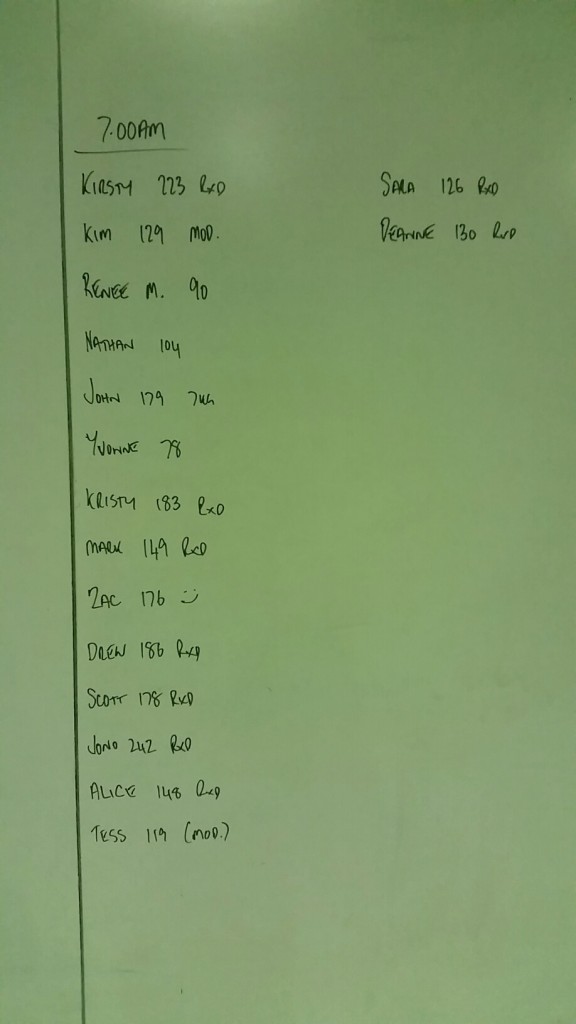 7.00AM
KIRSTY 223 RXD
KIM 129 MOD.
RENEE M. 90
NATHAN 104
JOHN 179 7KG
YVONNE 78
KRISTY 183 RXD
MARK 149 RXD
ZAC 176 :)
DREW 186 RXD
SCOTT 178 RXD
JONO 242 RXD
ALICE 148 RXD
TESS 119 (MOD.)
SARA 126 RXD
DEANNE 130 RXD